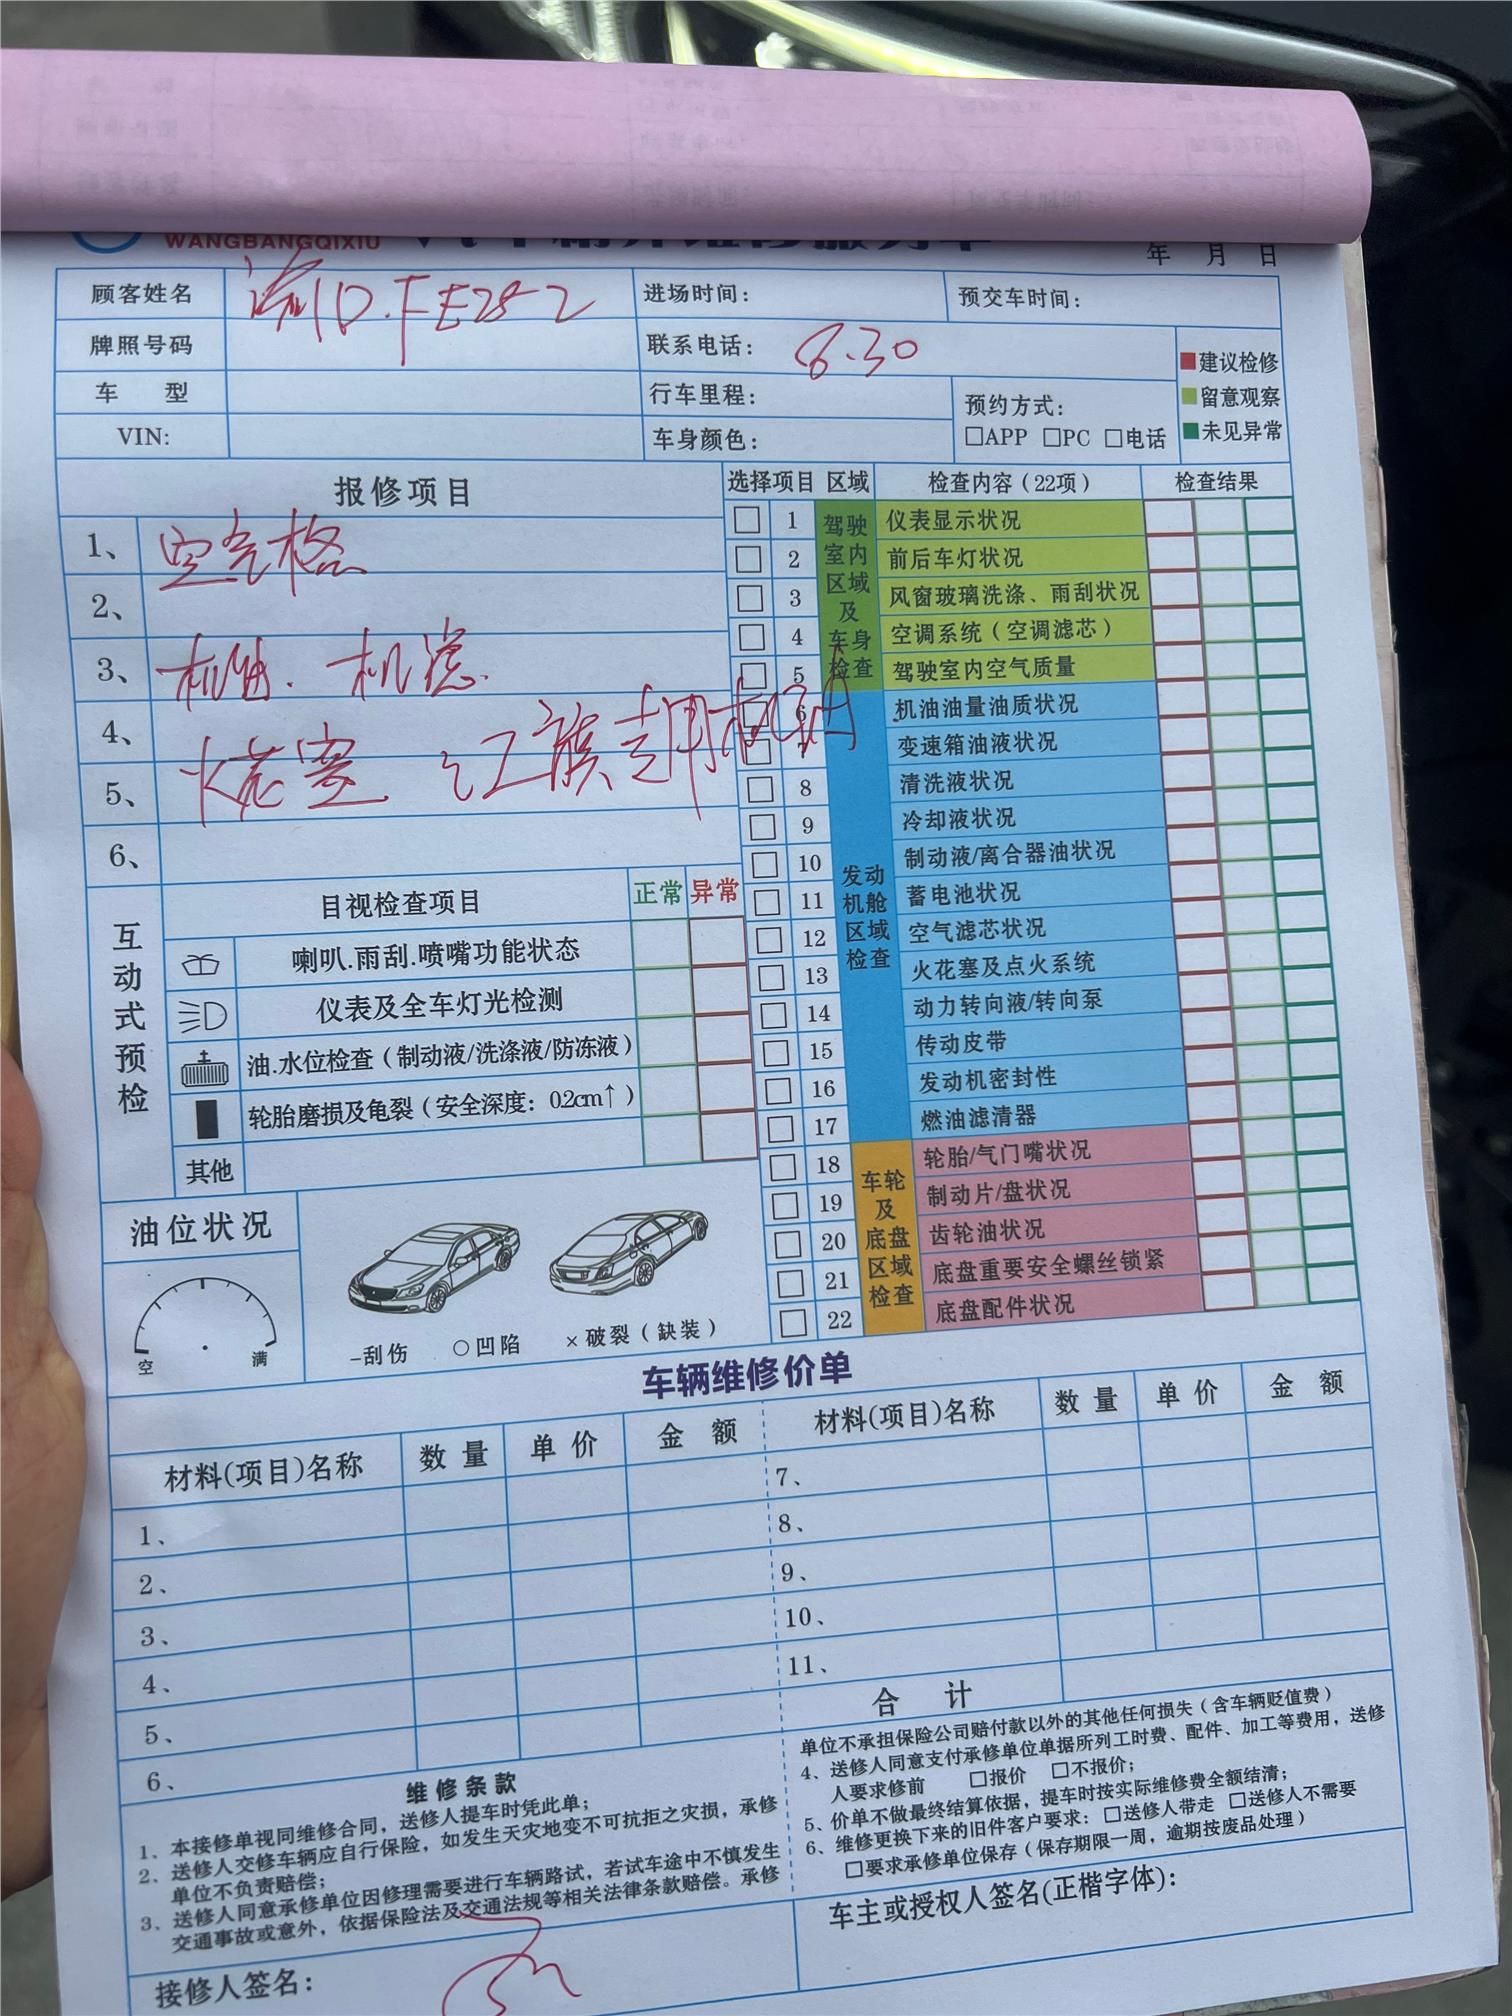 WANGBANGQIXIU
年 月 日
顾客姓名 渝D.FE252 进场时间： 预交车时间：
牌照号码 联系电话： 8.30
车 型 行车里程： 预约方式：
VIN: 车身颜色： □APP □PC □电话
建议检修
留意观察
未见异常
报修项目
1、 空气格
2、
3、 机油. 机滤.
4、
5、 火花塞
6、
互动式预检
目视检查项目 正常 异常
喇叭.雨刮.喷嘴功能状态
仪表及全车灯光检测
油.水位检查（制动液/洗涤液/防冻液）
轮胎磨损及龟裂（安全深度：0.2cm↑）
其他
油位状况
空 满
-刮伤 ○凹陷 ×破裂（缺装）
选择项目 区域 检查内容（22项） 检查结果
驾驶室内区域及车身检查
1 仪表显示状况
2 前后车灯状况
3 风窗玻璃洗涤、雨刮状况
4 空调系统（空调滤芯）
5 驾驶室内空气质量
发动机舱区域检查
6 机油油量油质状况
7 变速箱油液状况
8 清洗液状况
9 冷却液状况
10 制动液/离合器油状况
11 蓄电池状况
12 空气滤芯状况
13 火花塞及点火系统
14 动力转向液/转向泵
15 传动皮带
16 发动机密封性
17 燃油滤清器
车轮及底盘区域检查
18 轮胎/气门嘴状况
19 制动片/盘状况
20 齿轮油状况
21 底盘重要安全螺丝锁紧
22 底盘配件状况
车辆维修价单
材料(项目)名称 数量 单价 金额 材料(项目)名称 数量 单价 金额
1、 7、
2、 8、
3、 9、
4、 10、
5、 11、
6、 合 计
维修条款
1、本接修单视同维修合同，送修人提车时凭此单；
2、送修人交修车辆应自行保险，如发生天灾地变不可抗拒之灾损，承修
单位不负责赔偿；
3、送修人同意承修单位因修理需要进行车辆路试，若试车途中不慎发生
交通事故或意外，依据保险法及交通法规等相关法律条款赔偿。承修
单位不承担保险公司赔付款以外的其他任何损失（含车辆贬值费）
4、送修人同意支付承修单位单据所列工时费、配件、加工等费用，送修
人要求修前 □报价 □不报价；
5、价单不做最终结算依据，提车时按实际维修费全额结清；
6、维修更换下来的旧件客户要求：□送修人带走 □送修人不需要
□要求承修单位保存（保存期限一周，逾期按废品处理）
接修人签名：
车主或授权人签名(正楷字体)：